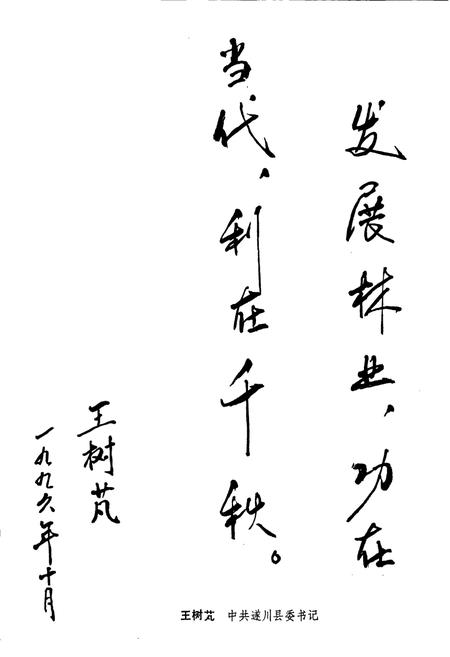 发展林业，功在
当代，利在千秋。
王树芃
一九九六年十月
王树芃 中共遂川县委书记